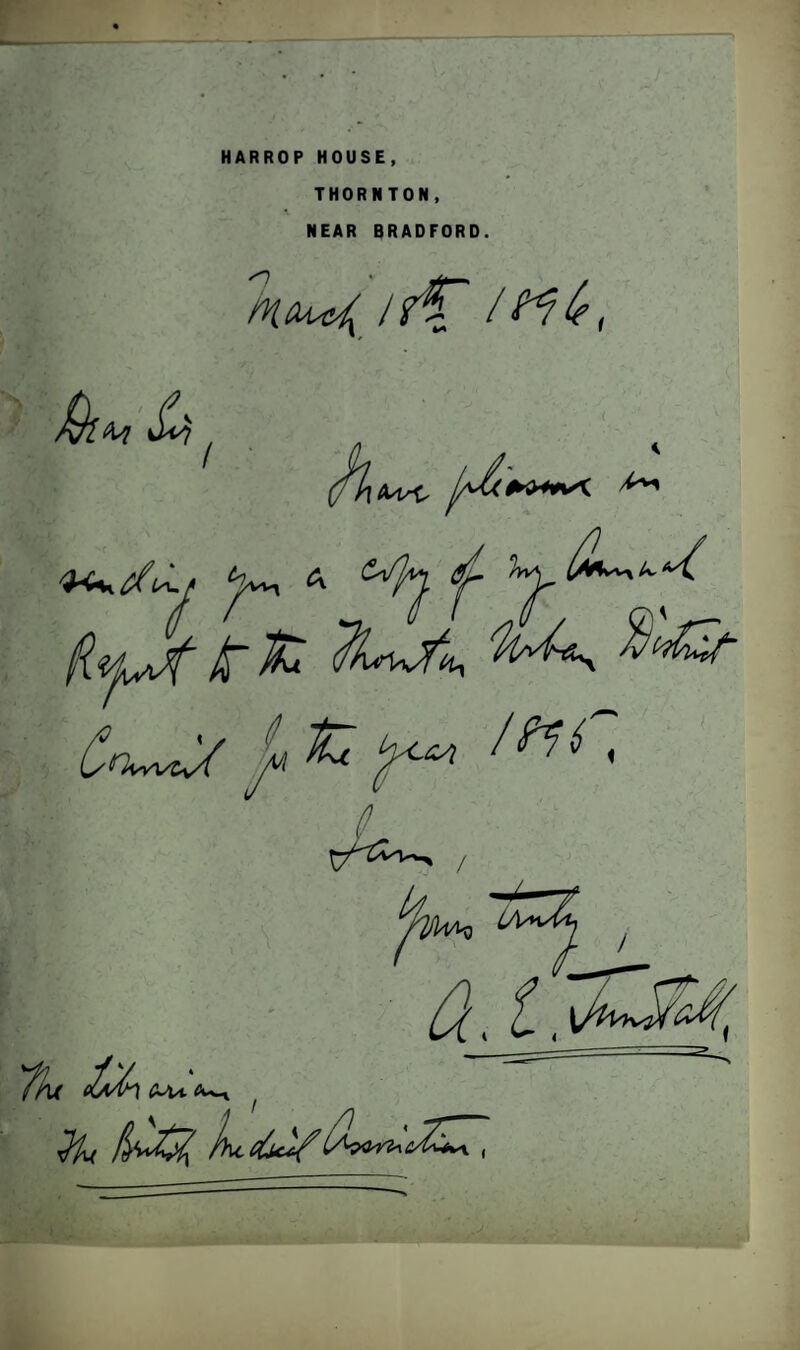 HARROP HOUSE,
THORNTON,
NEAR BRADFORD.
March 18th 1896,
Dear Sir,
I have pleasure in
sending you a copy of my Annual
Report to the Thornton Urban District
Council for the year 1895,
I am,
Yours truly,
The Librarian,
The British Medical Association,